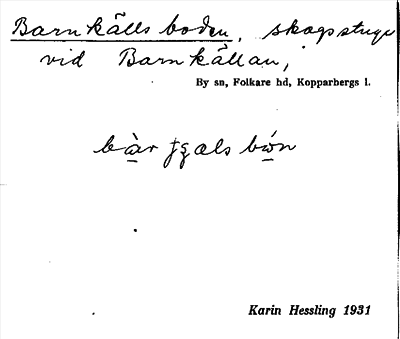 Barnkällsboden, skogsstuga
vid Barnkällan,
By sn, Folkare hd, Kopparbergs l.
Karin Hessling 1931